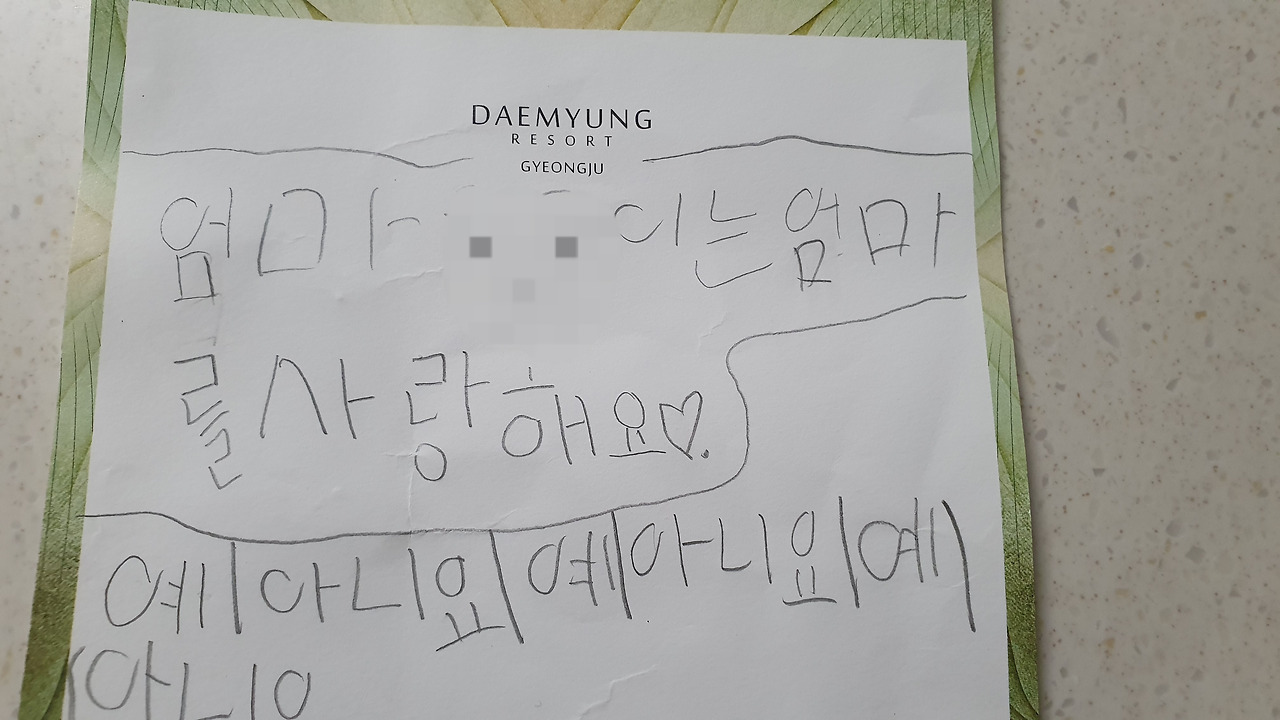 DAEMYUNG
RESORT
GYEONGJU
엄마 이는 엄마
를 사랑해요♡.
예|아니요|예|아니요|예|
아니